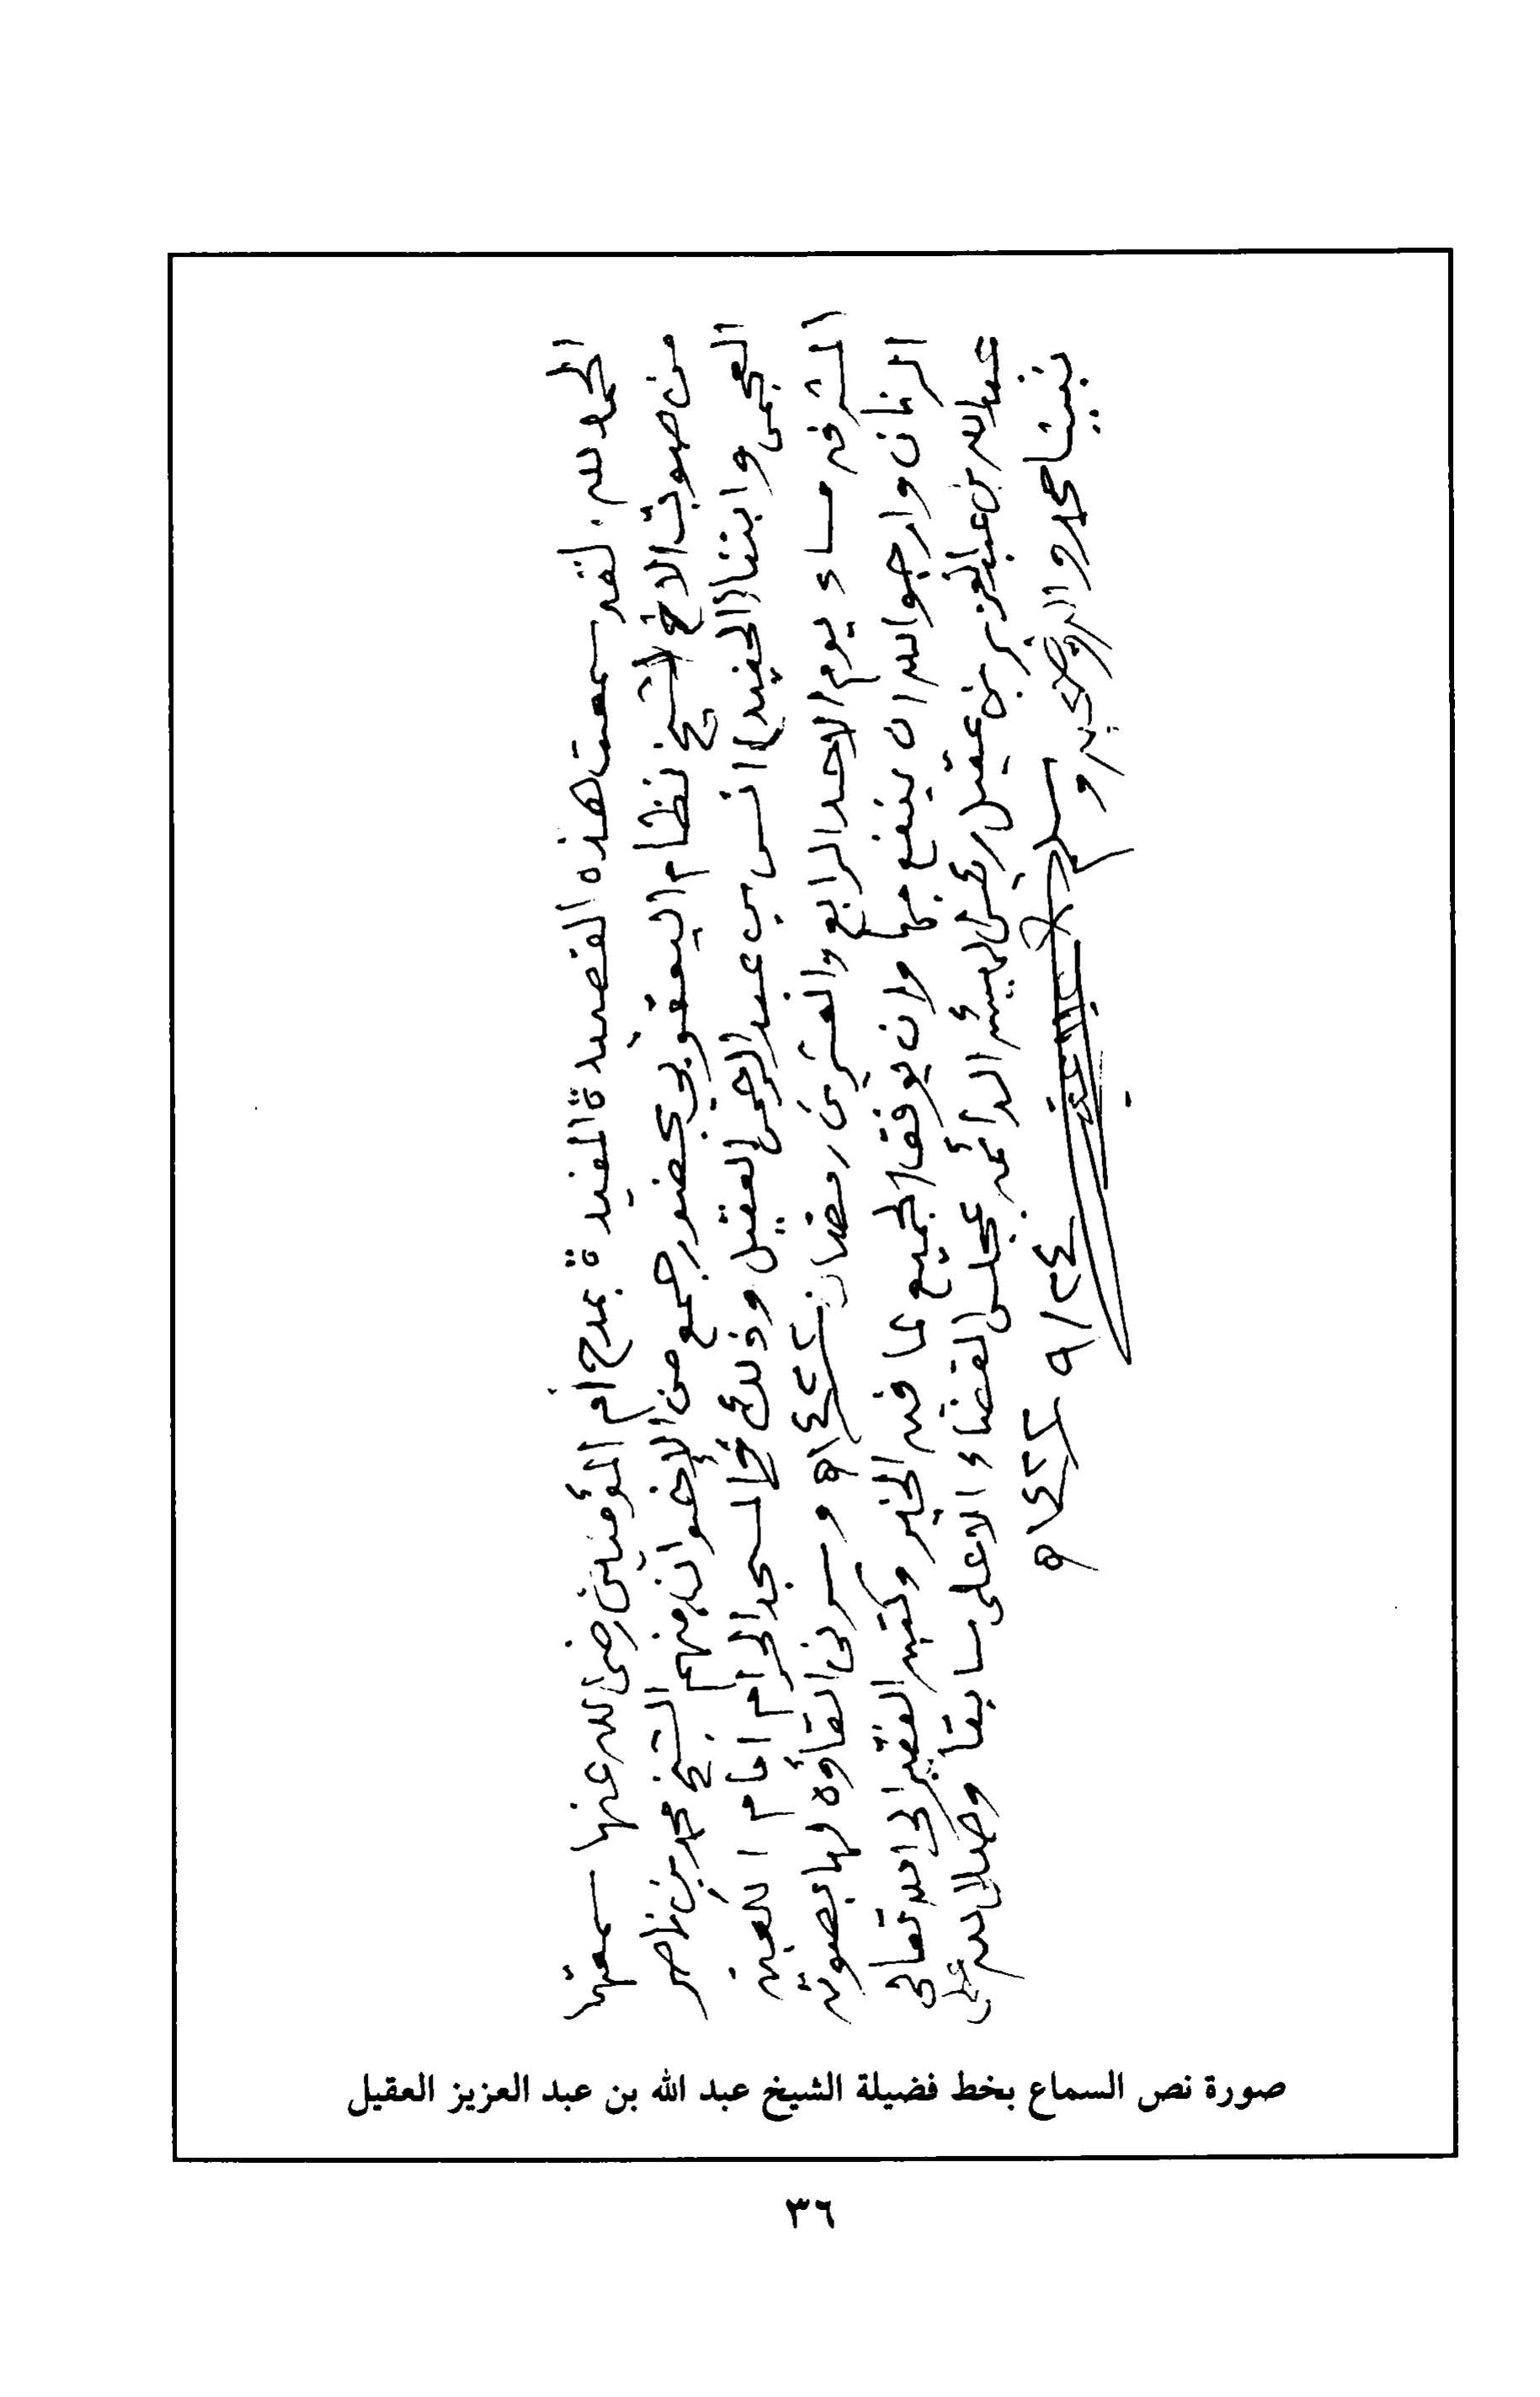 الحمد لله. لقد سمعت هذه القصيدة المفيدة بمدح أم المؤمنين رضي الله عنها سمعتها
من صوت الاخ الشيخ نظام اليعقوبي بحضور جمع من الإخوان منهم الشيخ محمد بن ناصر
العجمي وابننا (الحفيد) انس بن عبد الرحمن العقيل وذلك في المسجد الحرام امام الكعبة
المشرفه مساء يوم الاحد الرابع والعشرين رمضان ١٤٢٢ه وسرني القاؤه لها بصوته
الرنان وارجو الله ان ينفع بها وان يوفق الجميع لما فيه الخير وكتبه الفقير الى الله تعالى
عبد الله بن عبد العزيز بن عقيل رئيس الهيئه الدائمه بمجلس القضاء الاعلى سابقا وصلى الله على
نبينا محمد واله وصحبه وسلم
٢٤/٩ ١٤٢٢ه
صورة نص السماع بخط فضيلة الشيخ عبد الله بن عبد العزيز العقيل
٣٦